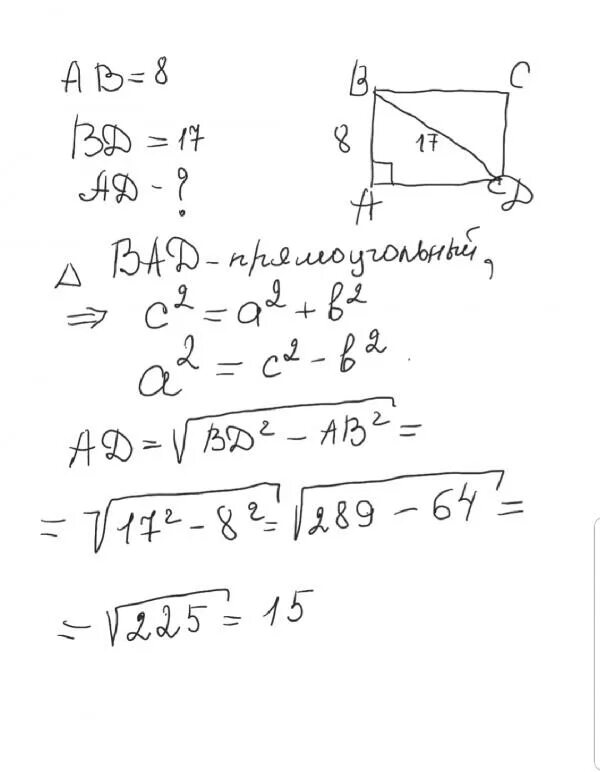 AB = 8
BD = 17
AD - ?
B
C
8
17
A
D
△ BAD - прямоугольный,
⇒ c² = a² + b²
a² = c² - b²
AD = √BD² - AB² =
= √17² - 8² = √289 - 64 =
= √225 = 15